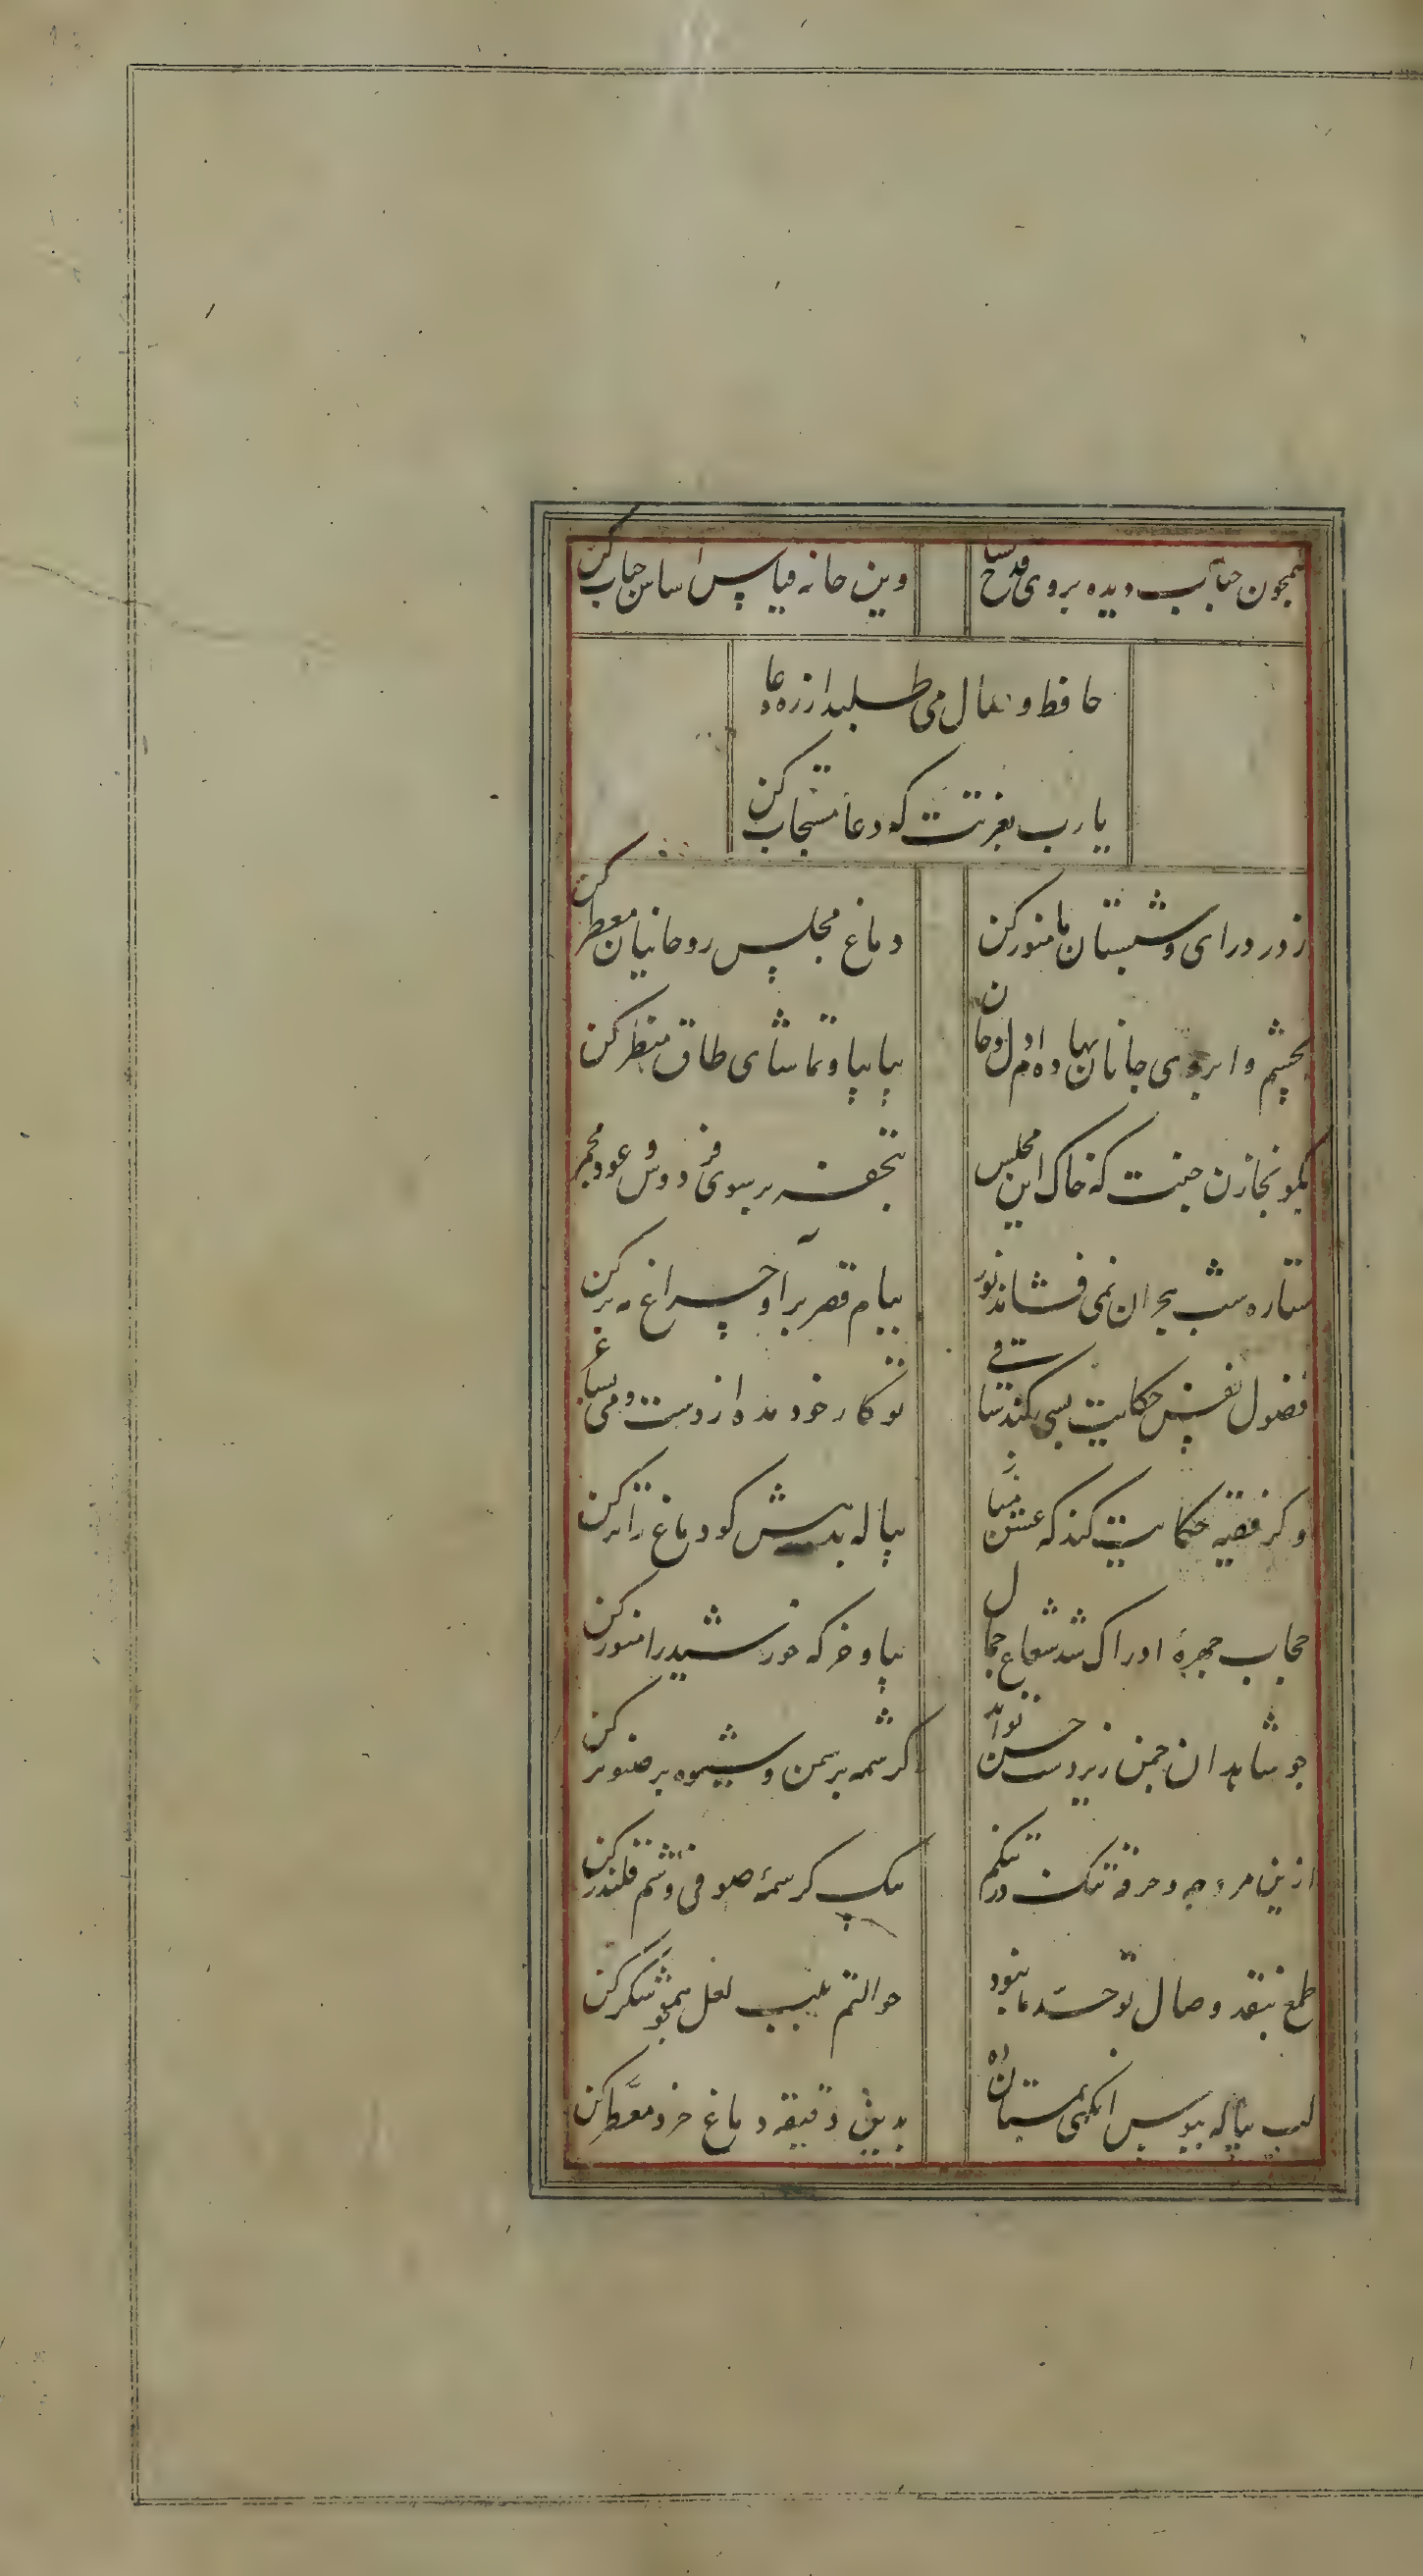 همچون حباب دیده بروی قدح کشا وین خانه قیاس اساس حباب کن
حافظ وصال می طلبد از ره دعا
یا رب بعزتت که دعا مستجاب کن
ز در درای و شبستان ما منور کن دماغ مجلس روحانیان معطر کن
بچشم و ابروی جانان نهاده ام دل و جان بیا بیا و تماشای طاق منظر کن
بگو بخازن جنت که خاک این مجلس بتحفه بر سوی فردوس و عود مجمر
ستاره شب هجران نمی فشاند نور ببام قصر برآ و چراغ مه بر کن
فضول نفس حکایت بسی کند ساقی تو کار خود مده از دست و می بساغر
و کر فقیه حکایت کند که عشق مباز پیاله بدهش کو دماغ را تر کن
حجاب چهرهٔ ادراک شد شعاع جمال بیا و خرکه خورشید را منور کن
جو شاهدان جمن زیر دست حسن تواند کرشمه بر سمن و شیوه بر صنوبر کن
ازین مروجه و خرقه تنک در تنکم بیک کرشمهٔ صوفی وشم قلندر کن
طمع بنقد وصال تو حد ما نبود حوالتم بلب لعل همجو شکر کن
لب پیاله ببوس انکهی بمستان ده بدین دقیقه دماغ خرد معطر کن